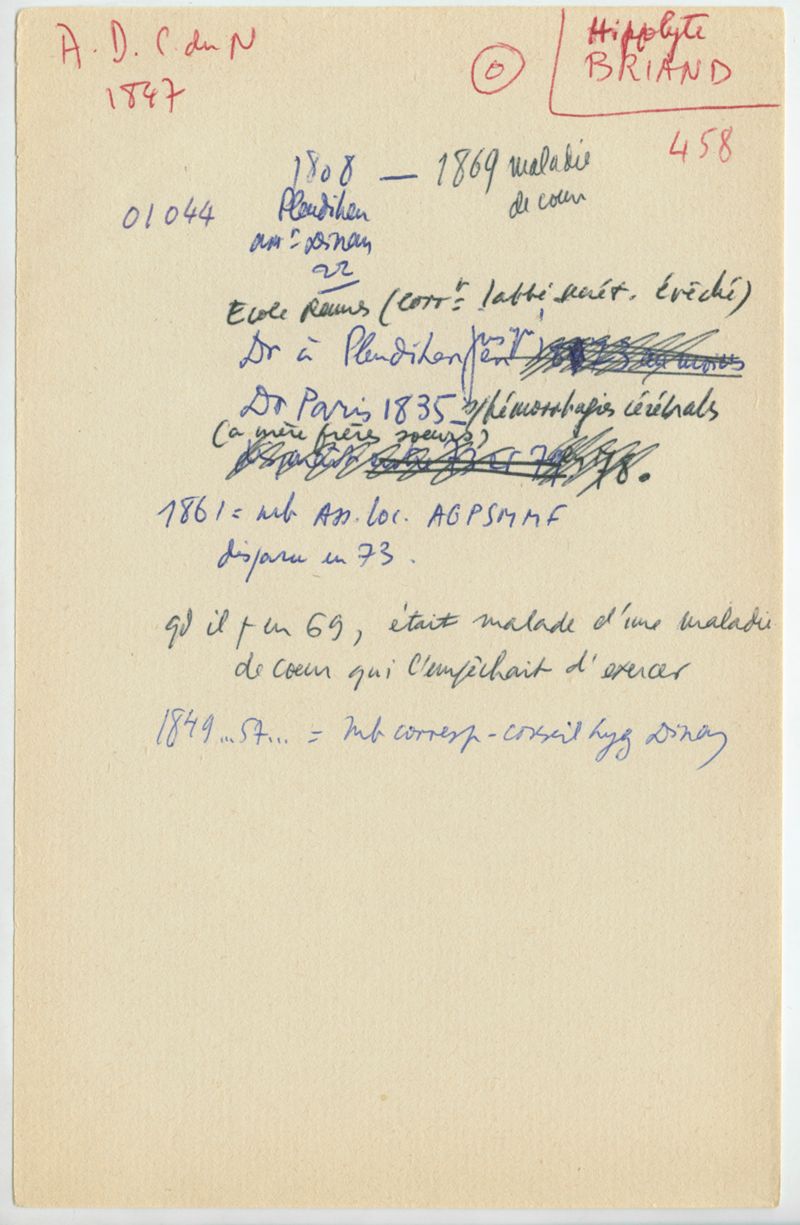 A. D. C. du N
1847
Hippolyte
BRIAND
0
458
1808 — 1869 maladie
de coeur
01044
Pleudihen
arrt Dinan
22
Ecole Rennes (corrt l'abbé secrét. Évêché)
Dr à Pleudihen jusqu'
en
Dr Paris 1835 s/hémorrhagies cérébrales
(a mère frères soeurs)
78.
1861 = mb Ass. loc. AGPSMMF
disparu en 73.
qd il + en 69, était malade d'une maladie
de coeur qui l'empêchait d'exercer
1849...57... = mb corresp-conseil hyg Dinan